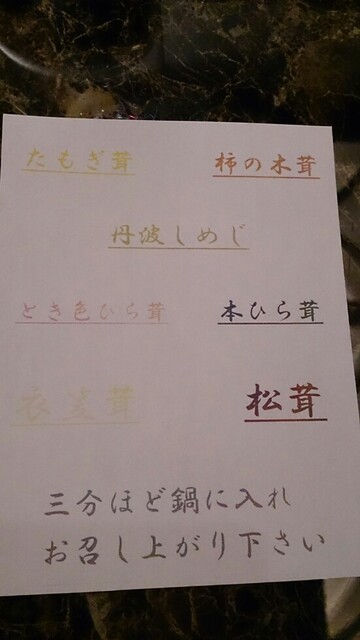 たもぎ茸
柿の木茸
丹波しめじ
とき色ひら茸
本ひら茸
衣笠茸
松茸
三分ほど鍋に入れ
お召し上がり下さい